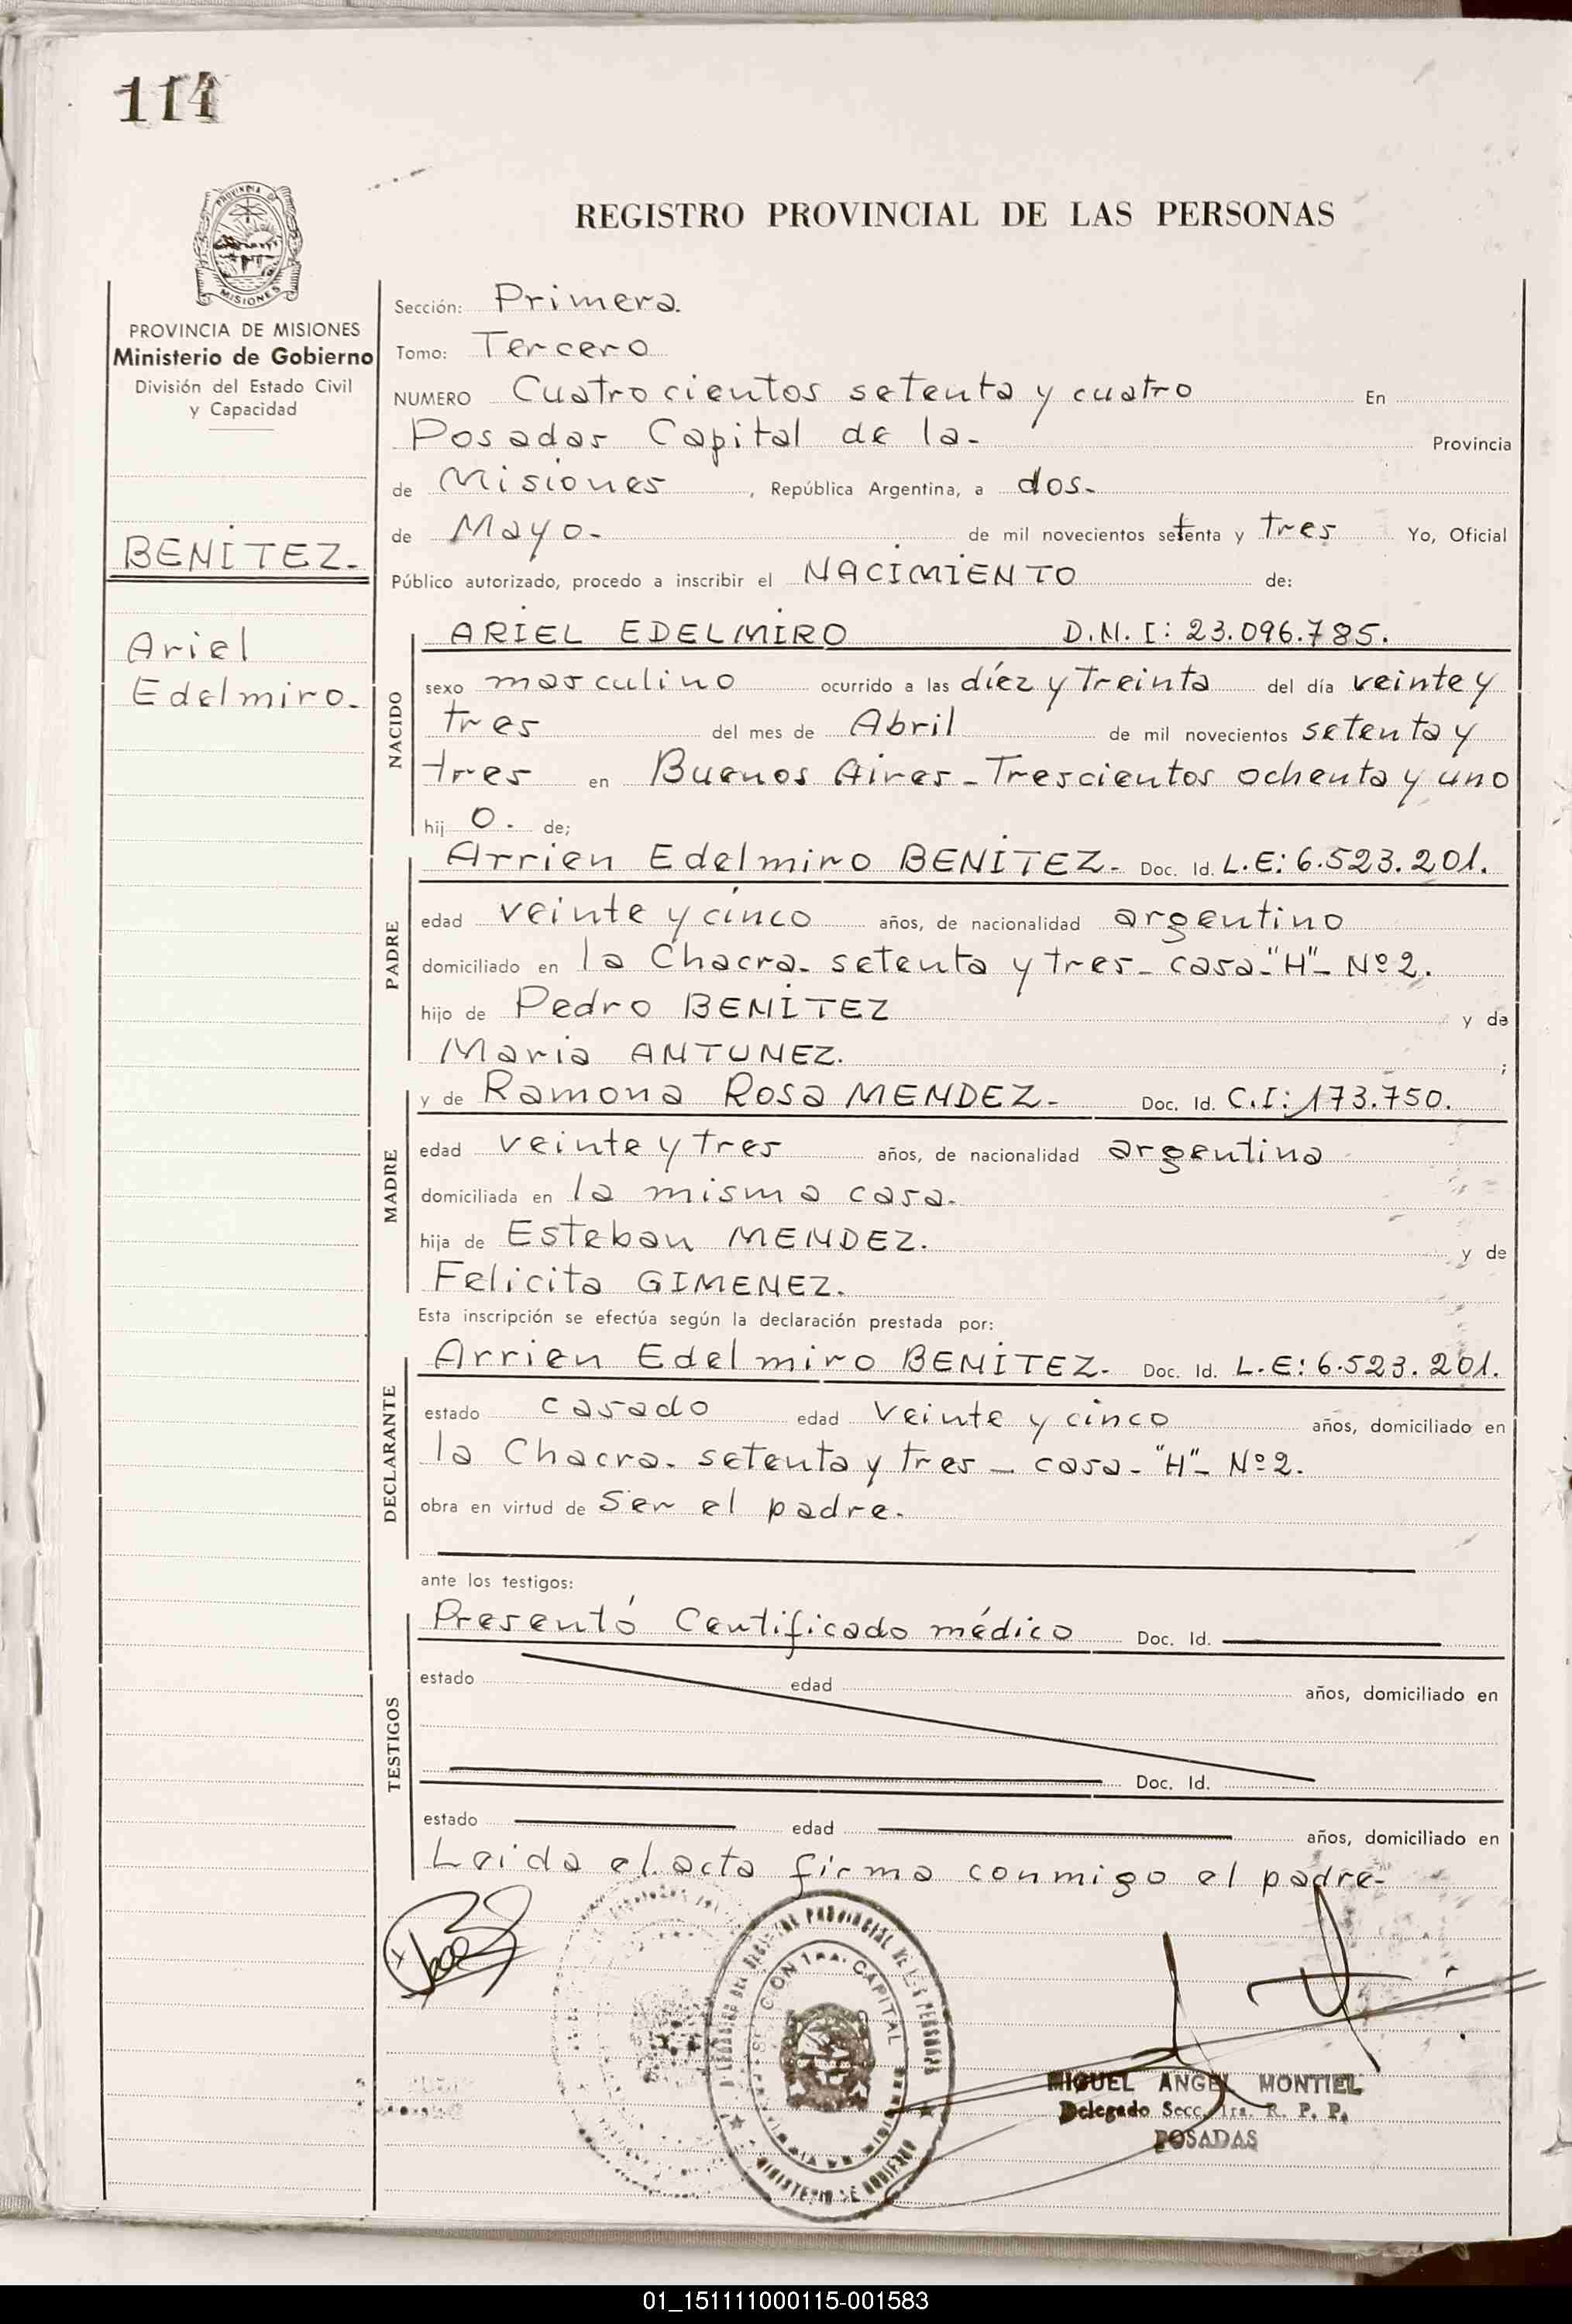 114
PROVINCIA DE MISIONES
MISIONES
PROVINCIA DE MISIONES
Ministerio de Gobierno
División del Estado Civil
y Capacidad
BENÍTEZ.-
Ariel
Edelmiro.-
REGISTRO PROVINCIAL DE LAS PERSONAS
Sección: Primera.
Tomo: Tercero
NUMERO Cuatrocientos setenta y cuatro En
Posadas Capital de la- Provincia
de Misiones, República Argentina, a dos.-
de Mayo.- de mil novecientos setenta y tres Yo, Oficial
Público autorizado, procedo a inscribir el NACIMIENTO de:
NACIDO
ARIEL EDELMIRO D.N.I: 23.096.785.
sexo masculino ocurrido a las díez y treinta del día veinte y
tres del mes de Abril de mil novecientos setenta y
tres en Buenos Aires - Trescientos ochenta y uno
hij o. de;
PADRE
Arrien Edelmiro BENÍTEZ.- Doc. Id. L.E: 6.523.201.
edad veinte y cinco años, de nacionalidad argentino
domiciliado en la Chacra. setenta y tres - casa-"H"- Nº 2.
hijo de Pedro BENÍTEZ y de
Maria ANTUNEZ. ;
MADRE
y de Ramona Rosa MENDEZ.- Doc. Id. C.I: 173.750.
edad veinte y tres años, de nacionalidad argentina
domiciliada en la misma casa.-
hija de Esteban MENDEZ. y de
Felicita GIMENEZ.
Esta inscripción se efectúa según la declaración prestada por:
DECLARANTE
Arrien Edelmiro BENÍTEZ.- Doc. Id. L.E: 6.523.201.
estado casado edad veinte y cinco años, domiciliado en
la Chacra. setenta y tres - casa- "H"- Nº 2.
obra en virtud de Ser el padre.-
ante los testigos:
TESTIGOS
Presentó Certificado médico Doc. Id.
estado edad años, domiciliado en
Doc. Id.
estado edad años, domiciliado en
Leida el acta firma conmigo el padre-
REGISTRO PROVINCIAL DE LAS PERSONAS
SECCION 1ra. CAPITAL
MINISTERIO DE GOBIERNO
MIGUEL ANGEL MONTIEL
Delegado Secc. 1ra. R. P. P.
POSADAS
01_151111000115-001583